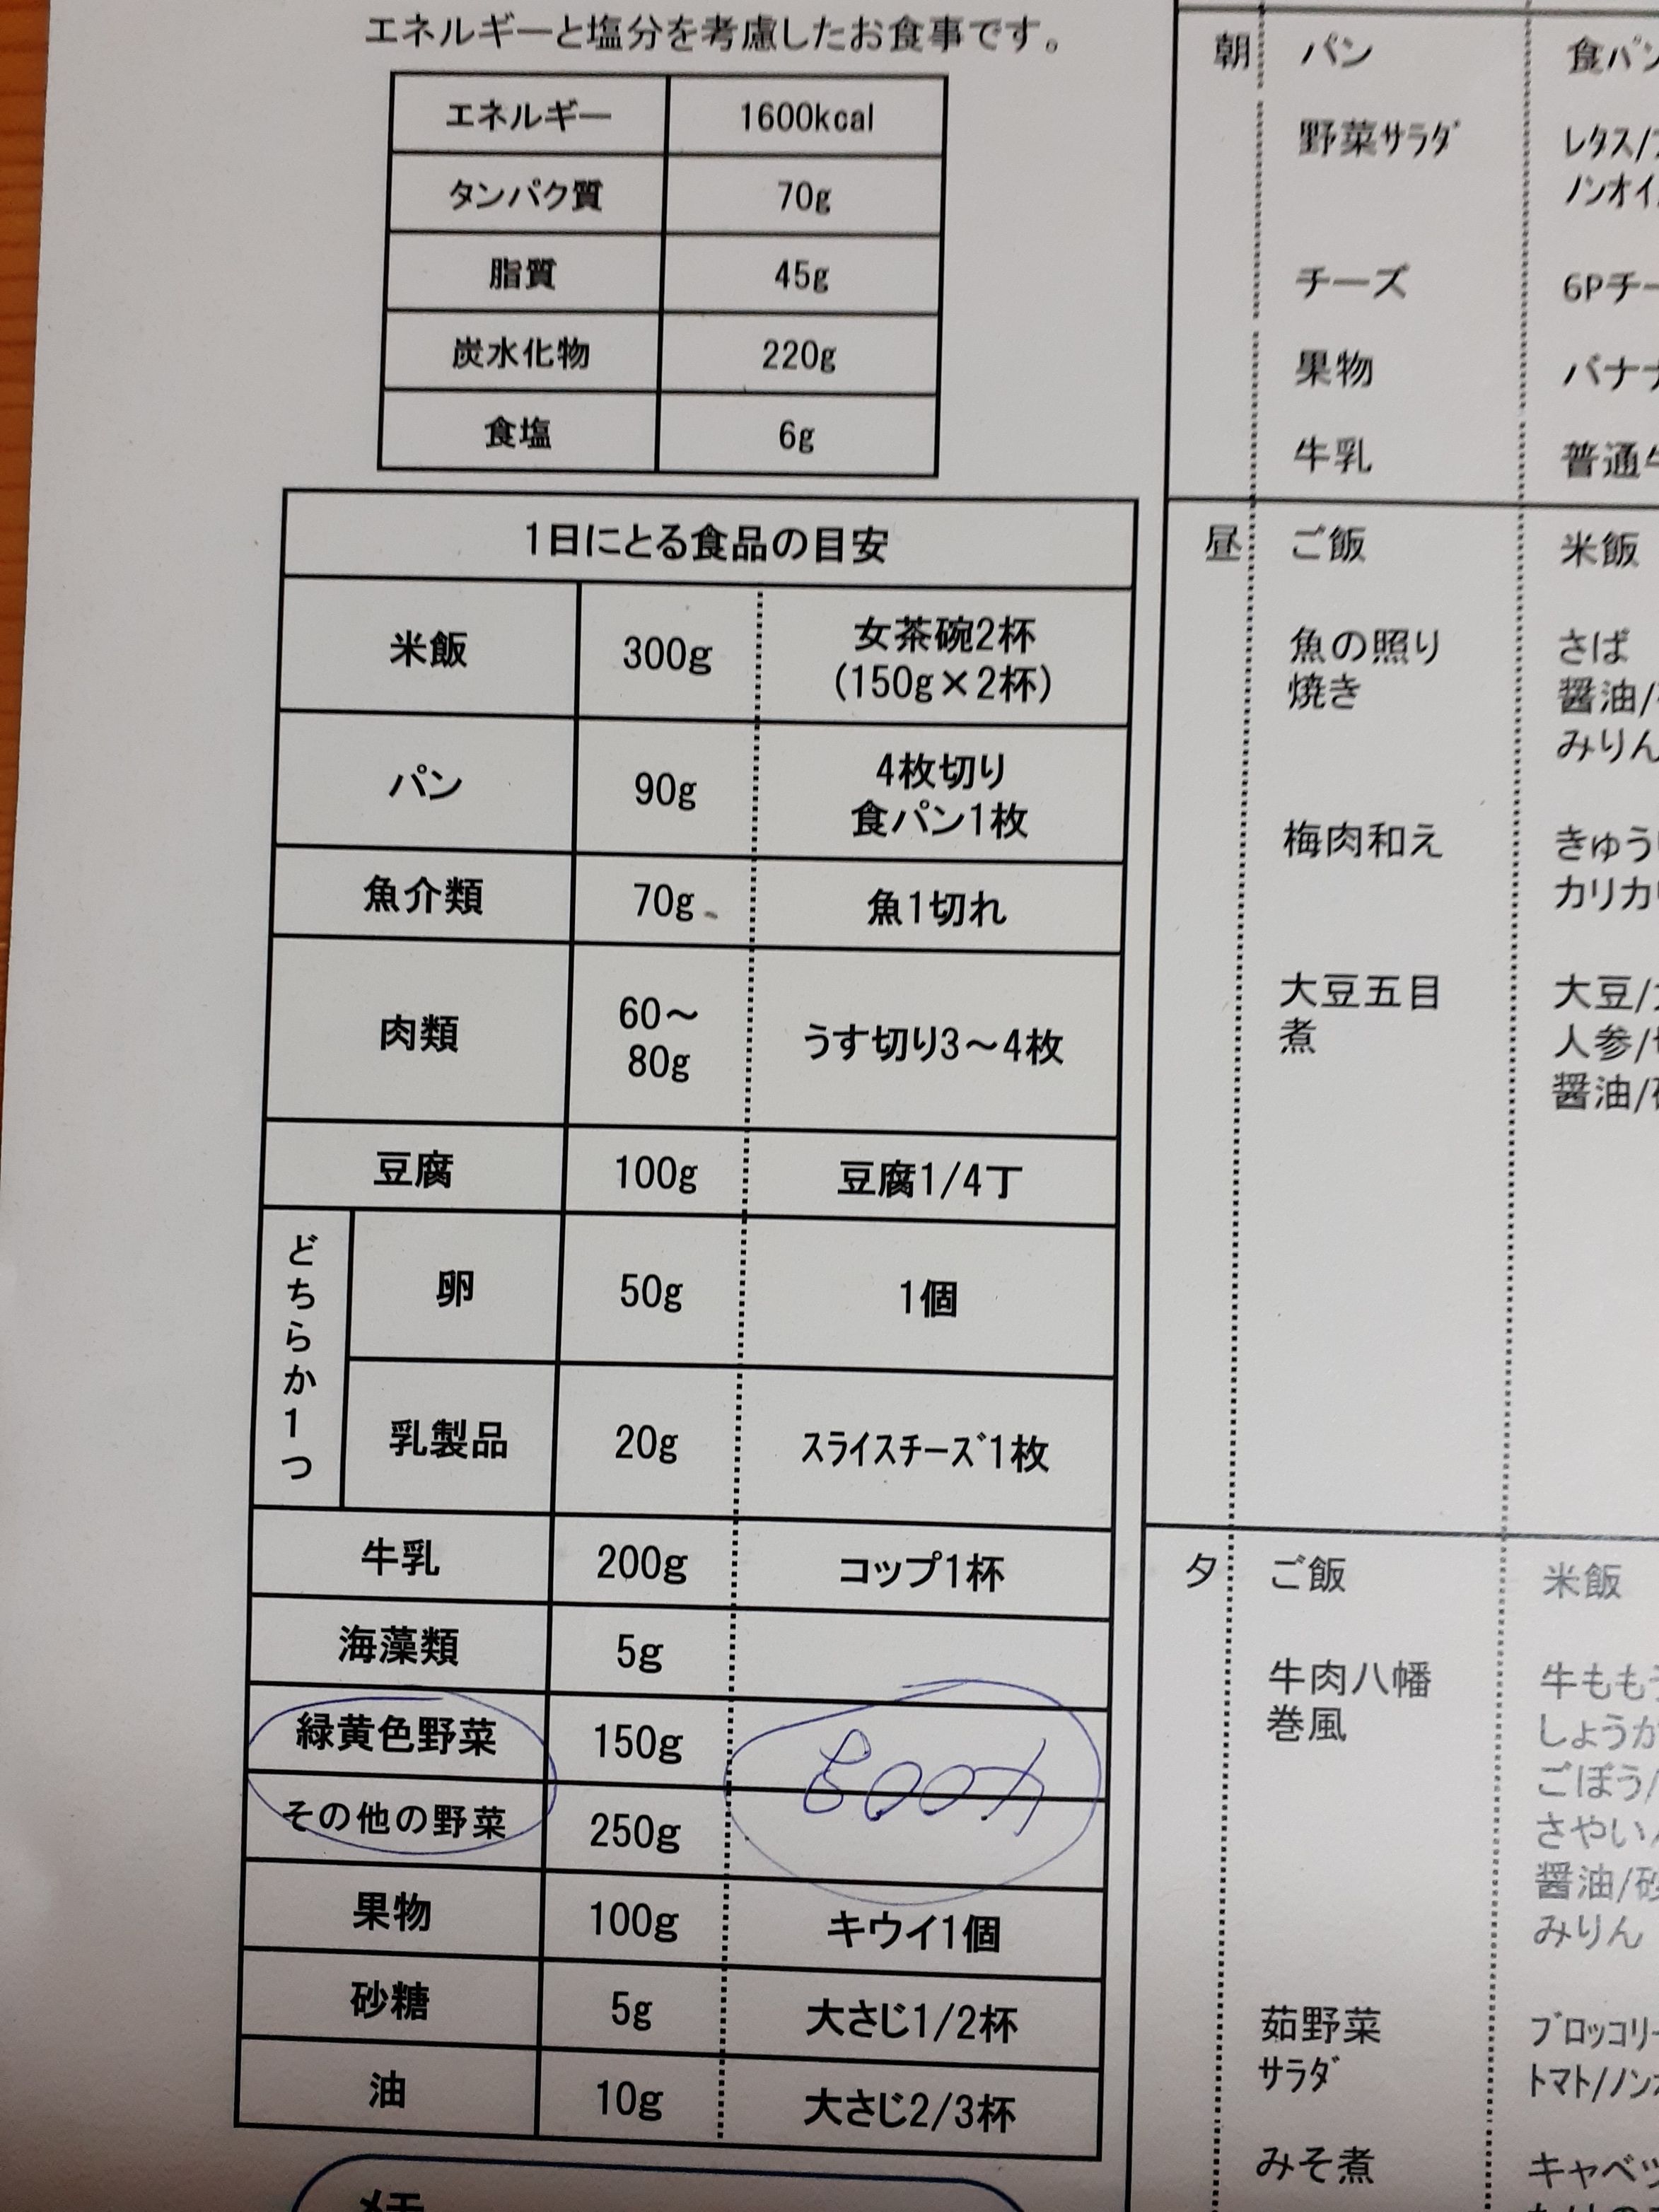 エネルギーと塩分を考慮したお食事です。
エネルギー 1600kcal
タンパク質 70g
脂質 45g
炭水化物 220g
食塩 6g
1日にとる食品の目安
米飯 300g 女茶碗2杯
(150g×2杯)
パン 90g 4枚切り
食パン1枚
魚介類 70g 魚1切れ
肉類 60～
80g うす切り3～4枚
豆腐 100g 豆腐1/4丁
どちらか1つ
卵 50g 1個
乳製品 20g スライスチーズ1枚
牛乳 200g コップ1杯
海藻類 5g
緑黄色野菜 150g
400g
その他の野菜 250g
果物 100g キウイ1個
砂糖 5g 大さじ1/2杯
油 10g 大さじ2/3杯
朝 パン 食パン
野菜サラダ レタス/
ノンオイ
チーズ 6Pチー
果物 バナナ
牛乳 普通牛
昼 ご飯 米飯
魚の照り さば
焼き 醤油/
みりん
梅肉和え きゅう
カリカリ
大豆五目 大豆/
煮 人参/
醤油/
夕 ご飯 米飯
牛肉八幡 牛もも
巻風 しょうが
ごぼう/
さやいん
醤油/砂
みりん
茹野菜 ブロッコリー
サラダ トマト/ノン
みそ煮 キャベツ